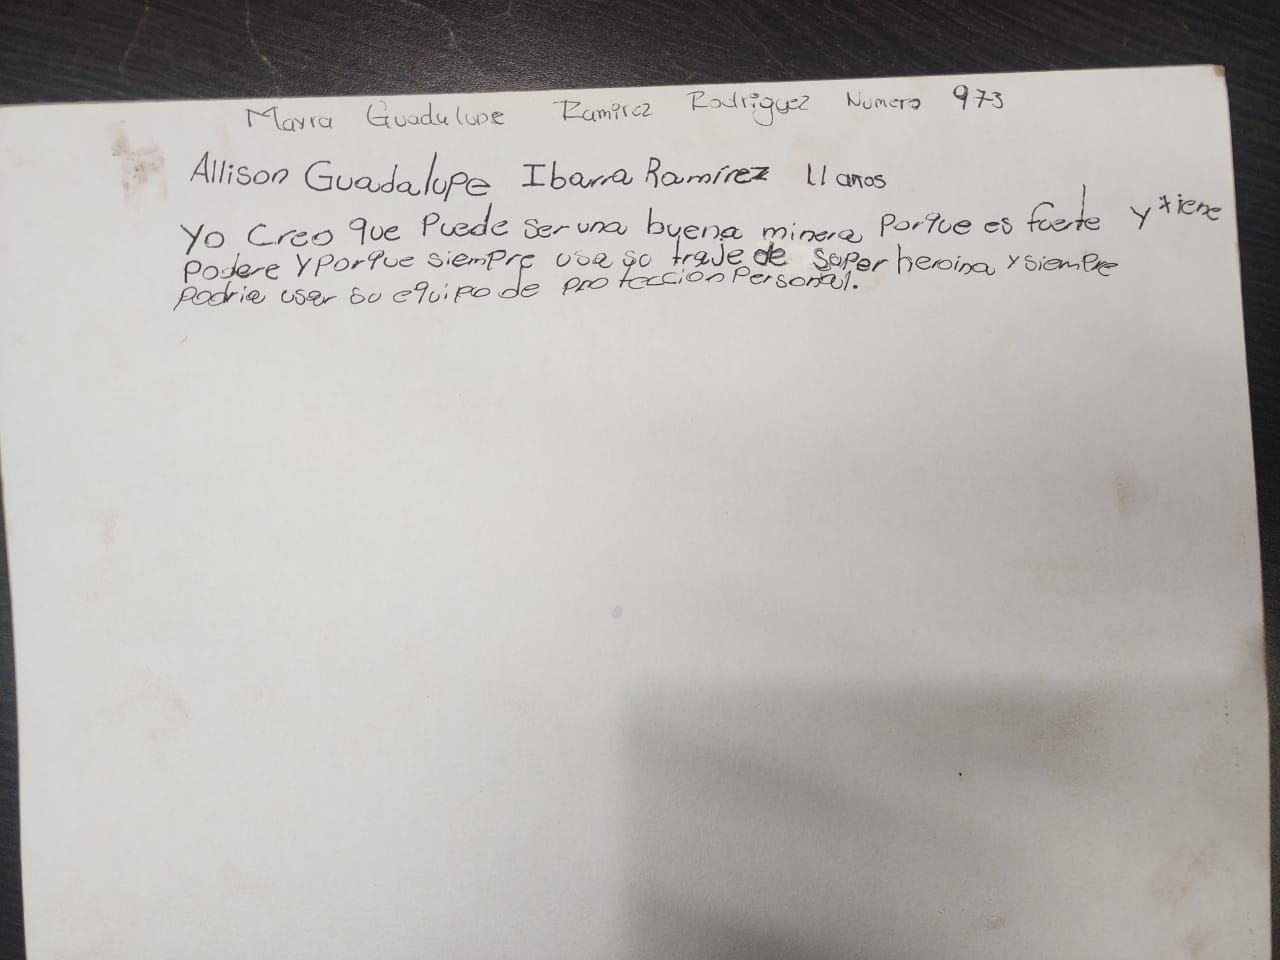 Mayra Guadalupe Ramirez Rodriguez Numero 973
Allison Guadalupe Ibarra Ramírez 11 anos
Yo Creo que Puede ser una buena minera Porque es fuerte y tiene
Podere y Porque siempre usa su traje de super heroina y siempre
Podria user su equipo de protección Personal.